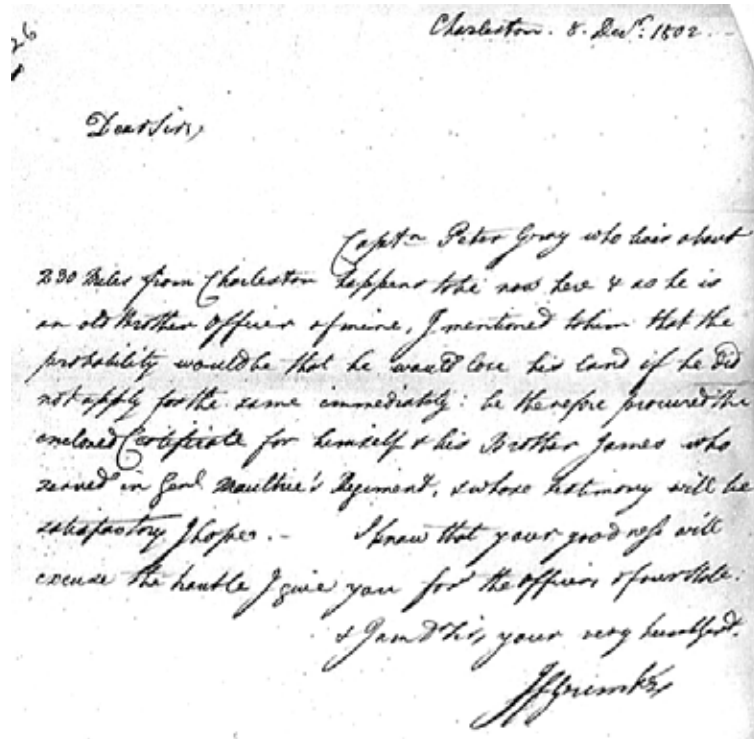 26
Charleston. 8. Decr: 1802.
Dear Sir,
Captn Peter Gray who lives about
230 Miles from Charleston happens to be now here & as he is
an old Brother Officer of mine, I mentioned to him that the
probability would be that he would lose his land if he did
not apply for the same immediately: he therefore procured the
enclosed Certificate for himself & his Brother James who
served in Genl Moultrie's Regiment, & whose testimony will be
satisfactory I hope. — I know that your goodness will
excuse the trouble I give you for the Officers of our State.
& I am Dr Sir, your very humbl
JFGrimké